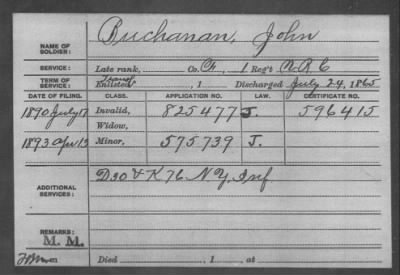 NAME OF SOLDIER: Buchanan, John
SERVICE: Late rank, Co. G, 1 Reg't V.R.C
TERM OF SERVICE: Transf Enlisted , 1 Discharged July 24, 1865
DATE OF FILING. CLASS. APPLICATION NO. LAW. CERTIFICATE NO.
1890 July 17 Invalid, 825477 J. 596415
Widow,
1893 Apr 13 Minor, 575739 J.
ADDITIONAL SERVICES: D 30 & K 76 N Y, Inf
REMARKS:
M. M.
Died , 1 , at